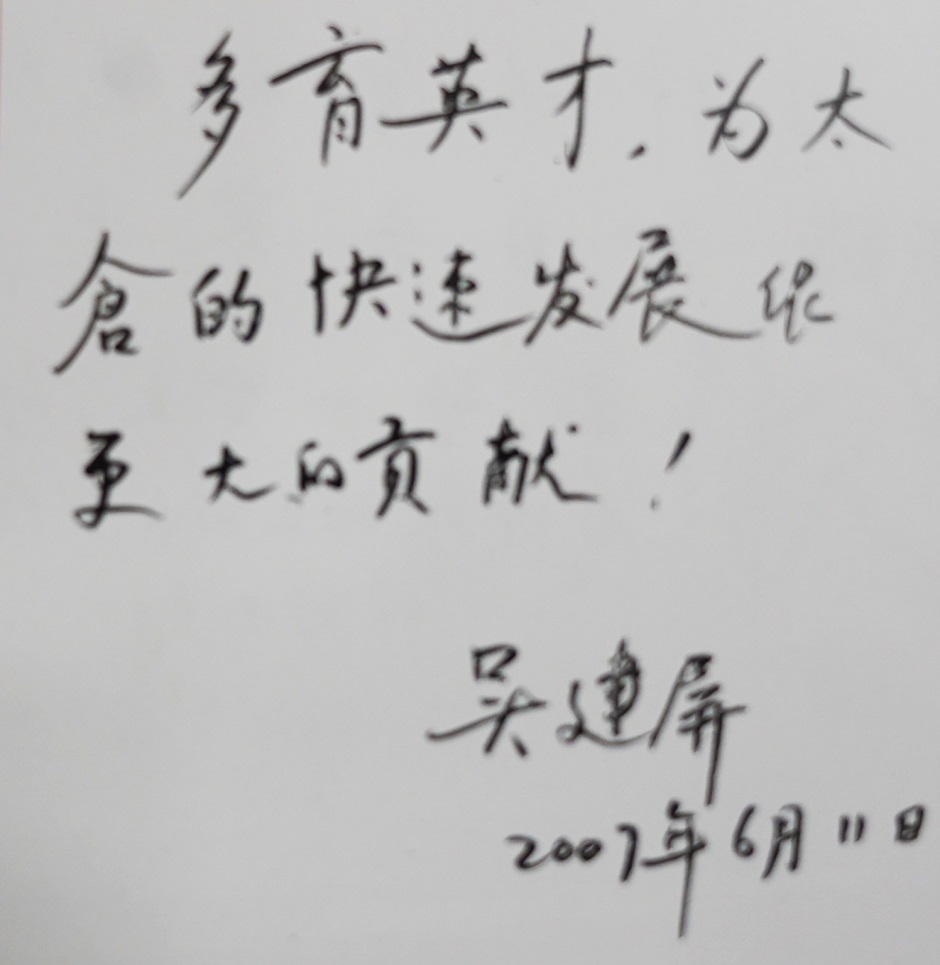 多育英才,为太
仓的快速发展
更大的贡献!
吴建屏
2007年6月11日